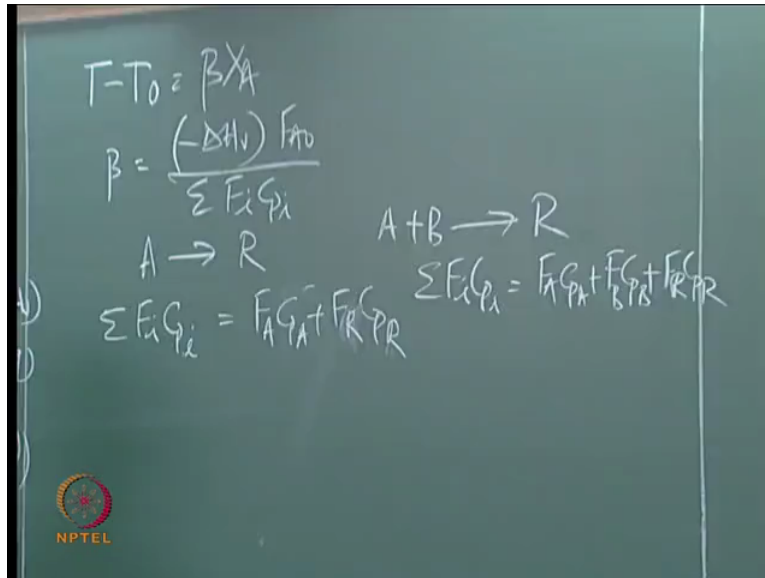 T-T0 = βXA
β = (-ΔH1) FA0 / Σ Fi Cpi
A → R
Σ Fi Cpi = FA CpA + FR CpR
A + B → R
Σ Fi Cpi = FA CpA + FB CpB + FR CpR
NPTEL